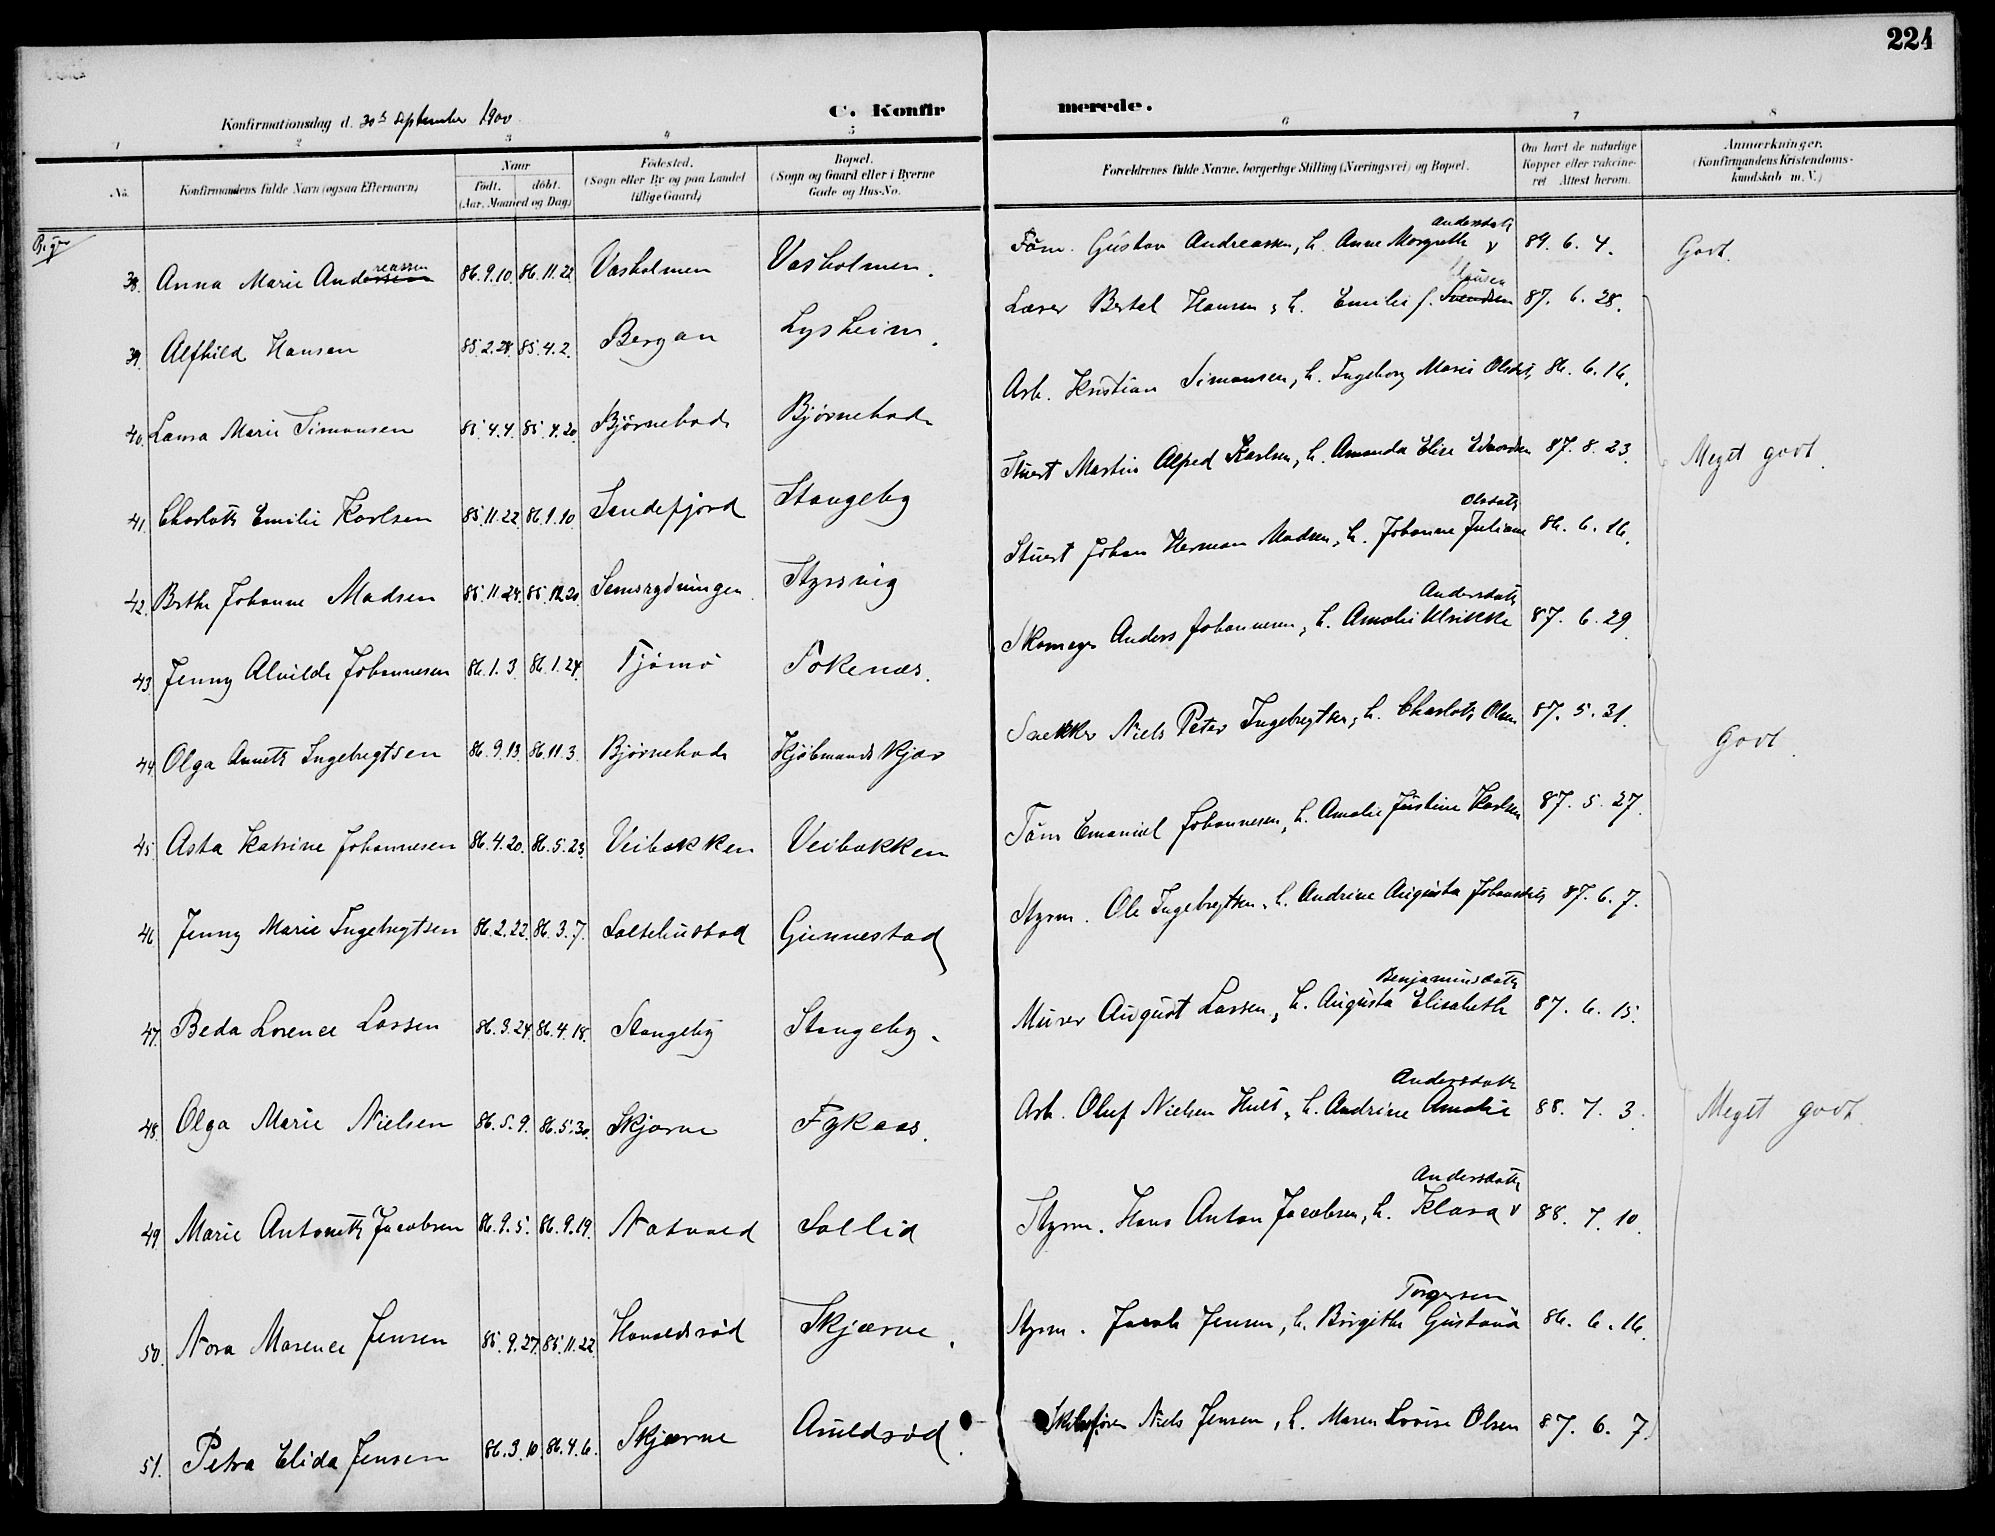 224
Konfirmationsdag d. 30te September 1900. C. Konfirmerede.
1 2 3 4 5 6 7 8
No. Konfirmandens fulde Navn (ogsaa Efternavn) Naar født. døbt. (Aar, Maaned og Dag) Fødested. (Sogn eller By og paa Landet tillige Gaard) Bopæl. (Sogn og Gaard eller i Byerne Gade og Hus-No. Forældrenes fulde Navne, borgerlige Stilling (Næringsvei) og Bopæl. Om havt de naturlige Kopper eller vakcineret. Attest herom. Anmærkninger. (Konfirmandens Kristendomskundskab m. V.)
Piger
38. Anna Marie Andreassen 86.9.10. 86.11.22 Vasholmen Vasholmen. Tøm. Gustav Andreassen, h. Anne Margrethe Andersdatt 89.6.4. Godt.
39. Alfhild Hansen 85.2.28. 85.4.2. Bergan Lysheim. Lærer Bertel Hansen, h. Emilie f. Hansen 87.6.28.
40. Laura Marie Simonsen 85.4.4. 85.4.20. Bjørnebod Bjørnebod Arb. Kristian Simonsen, h. Ingeborg Marie Olsdt. 86.6.16.
41. Charlotte Emilie Karlsen 85.11.22. 86.1.10. Sandefjord Stangeby Stuert Martin Alfred Karlsen, h. Amanda Elise Edvardsen 87.8.23. Meget godt.
42. Berthe Johanne Madsen 85.11.24. 85.12.20. Semsrydningen Styrsvig Stuert Johan Herman Madsen, h. Johanne Juliane Olsdatt 86.6.16.
43. Jenny Alvilde Johannesen 86.1.3. 86.1.24. Tjømø Tokenæs. Skomager Anders Johannesen, h. Amalie Ulrikke Andersdatt 87.6.29.
44. Olga Annette Ingebregtsen 86.9.13. 86.11.3. Bjørnebod Kjøbmandskjær Snekker Niels Peter Ingebregtsen, h. Charlotte Olsen 87.5.31. Godt.
45. Asta Katrine Johannesen 86.4.20. 86.5.23. Veibakken Veibakken Tøm Emanuel Johannesen, h. Amalie Justine Karlsen 87.5.27.
46. Jenny Marie Ingebregtsen 86.2.22. 86.3.7. Salteliustad Gunnestad Styrm. Ole Ingebregtsen, h. Andrine Augusta Johansdatt 87.6.7.
47. Beda Lorence Lassen 86.3.24. 86.4.18. Stangeby Stangeby. Murer August Lassen, h. Augusta Elisabeth Benjaminsdatt 87.6.15.
48. Olga Marie Nielsen 86.5.9. 86.5.30. Skjærve Fykaas. Arb. Oluf Nielsen Hult, h. Andrine Amalie Andersdatt 88.7.3. Meget godt.
49. Marie Antonette Jacobsen 86.9.5. 86.9.19. Natvald Sollid Styrm. Hans Anton Jacobsen, h. Klara Andersdatt 88.7.10.
50. Nora Marence Jensen 85.9.27. 85.11.22. Havaldsrød Skjærve. Styrm. Jacob Jensen, h. Birgithe Gustava Torgersen 86.6.16.
51. Petra Elida Jensen 86.3.10. 86.4.6. Skjærve Auuldsrød. Skibsfører Niels Jensen, h. Maren Lovise Olsen 87.6.7.